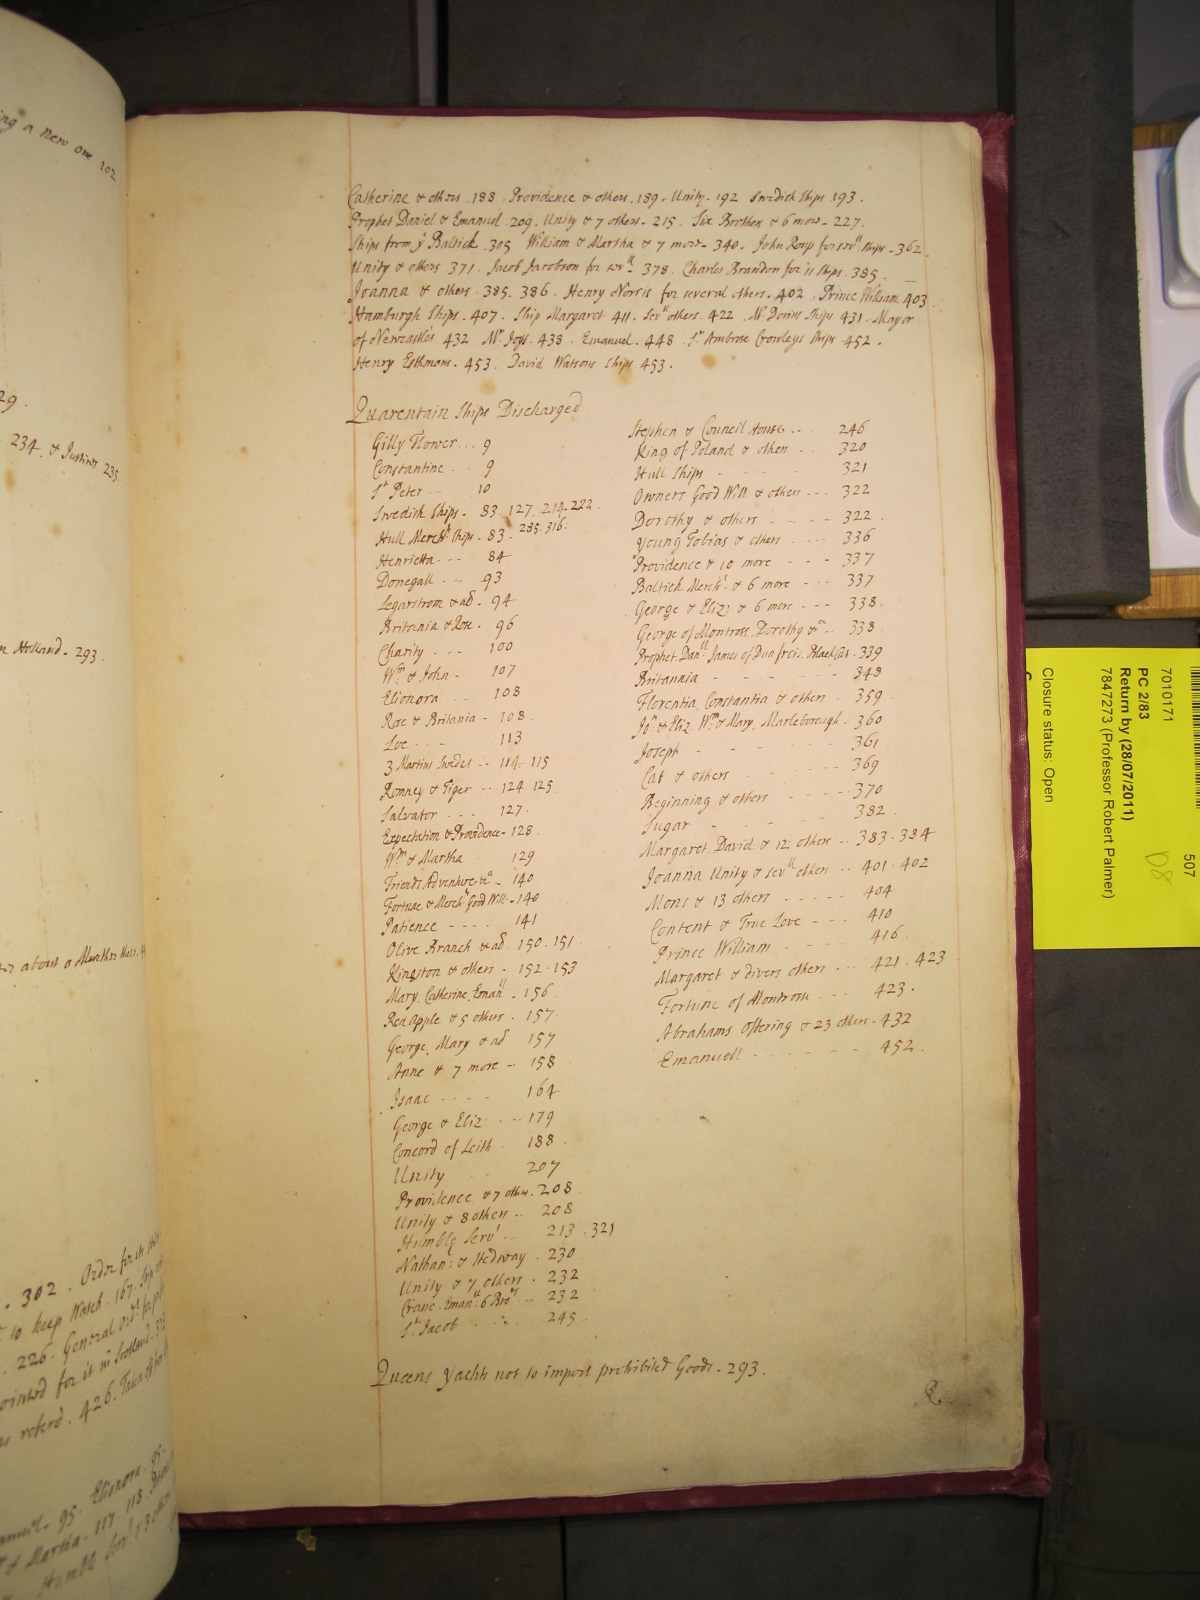 ing a new one 102
29.
234. & Justina 235
Holland - 293
about a
. 302 . Order for
to keep Watch . 167.
. 226. General Ord.r for
ointed for it in Scotland.
referd . 426.
95. Elionora. 95.
& Martha - 117. 118.
Humble Serv.t
Catherine & others . 188 . Providence & others . 189 . Unity - 192 Swedish Ships 193 .
Prophet Daniel & Emanuel 209. Unity & 7 others - 215 . Six Brothers & 6 more - 227.
Ships from y Baltick 305 William & Martha & 7 more - 340 . John Roop for sev.ll Ships . 362 .
Unity & others 371 . Jacob Jacobson for sev.ll 378 . Charles Brandon for 11 Ships . 385 .
Joanna & others . 385. 386 . Henry Norris for several others . 402 . Prince William 403
Hamburgh Ships . 407. Ship Margaret 411 . Sev.ll others . 422 . M.r Dorins Ships . 431 - Mayor
of Newcastles 432 M.r Jops . 438 . Emanuel . 448 S.r Ambrose Crowleys Ships . 452 .
Henry Esthmans . 453 . David Watsons Ships . 453 .
Quarentain Ships Discharged
Gilly Flower ... 9
Constantine . . 9
S.t Peter ... 10
Swedish Ships . 83. 127. 214. 222
285. 316.
Hull Merch.t Ships . 83 .
Henrietta - - - 84
Donegall - - - 93
Legarstrom & al . 94
Britania & Rose . 96
Charity - - - 100
W.m & John - 107
Elionora - - 108
Rose & Britania - 108 .
Loe - - - 113
3 Martins Swedes - - 114 115
Romney & Tiger - - 124 125
Salvator - - - 127 .
Expectation & Providence - 128 .
W.m & Martha 129
Friends Adventure &.a - 140
Fortune & Merch.t Good Will - 140
Patience - - - - 141
Olive Branch & al 150 . 151
Kingston & others - 152 . 153
Mary, Catherine, Eman.ll - 156
Red Apple & 5 others . 157
George, Mary & al 157
Anne & 7 more - 158
Isaac - - - - 164
George & Eliz: - - 179
Concord of Leith . 188 .
Unity 207
Providence & 7 oth.rs . 208
Unity & 8 others - - 208
Humble Serv.t 213 . 321
Nathan: & Hedway . 230
Unity & 7 others . 232
Crane, Eman.ll 6 Bro.rs - - 232
S.t Jacob 245
Stephen & Council House . . 246
King of Poland & others . 320
Hull Ships - - - - 321
Owners Good Will & others - - - 322
Dorothy & others - - - - 322
Young Tobias & others - - - - 336
Providence & 10 more - - - 337
Baltick Merch.t & 6 more - - - 337
George & Eliz: & 6 more - - - 338
George of Montross, Dorothy &.a - - 338
Prophet Dan.ll James of Dunfreis, Black Cat . 339
Britannia - - - - - 348
Florentia, Constantia & others . 359
Jo.n & Eliz. W.m & Mary, Marleborough . 360
Joseph - - - - - 361
Cat & others - - - - 369
Beginning & others - - - - 370
Sugar - - - - - 382
Margaret, David & 12 others - - 383 . 384
Joanna Unity & sev.ll others - - 401 . 402
Mons & 13 others - - - - - 404
Content & True Love - - - 410
Prince William - - - - 416
Margaret & divers others - - - 421 . 423
Fortune of Montross - - - 423 .
Abrahams Offering & 23 others - 432
Emanuell - - - - - - 452
Queens Yachts not to import prohibited Goods . 293 .
R.
7010171
507
PC 2/83
Return by (28/07/2011)
7847273 (Professor Robert Palmer)
Closure status: Open
D8